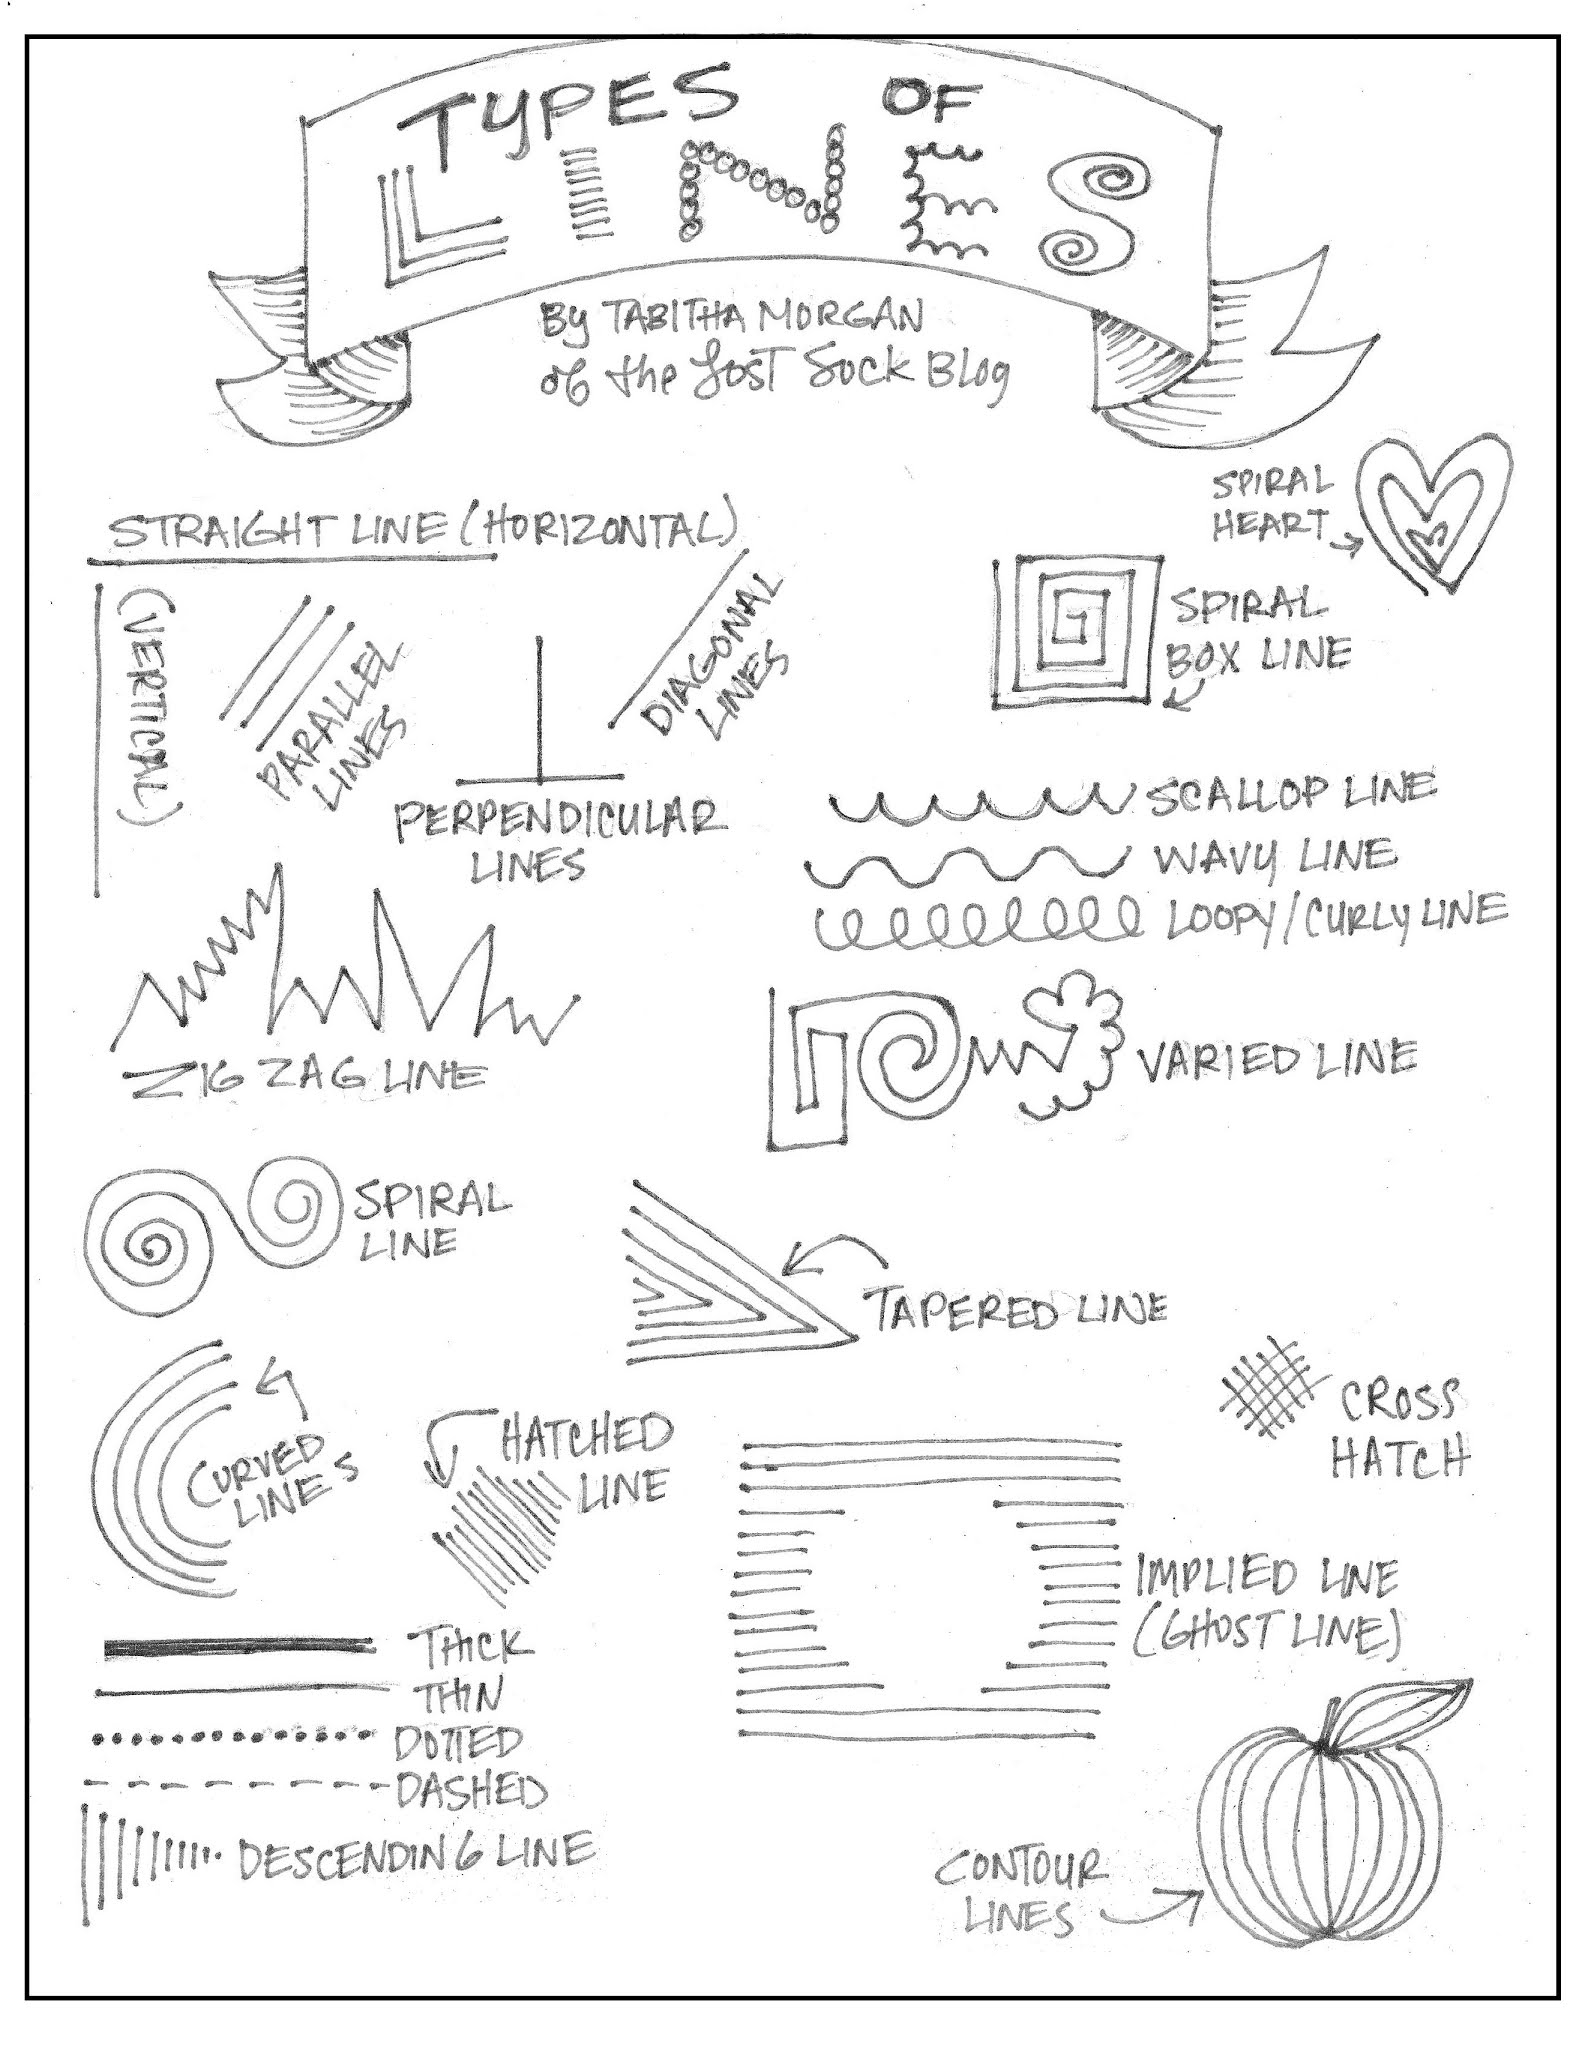 TYPES OF
LINES
By TABITHA MORGAN
of the Lost Sock Blog
SPIRAL
HEART
STRAIGHT LINE (HORIZONTAL)
(VERTICAL)
PARALLEL
LINES
DIAGONAL
LINES
SPIRAL
BOX LINE
PERPENDICULAR
LINES
SCALLOP LINE
WAVY LINE
LOOPY/CURLY LINE
ZIG ZAG LINE
VARIED LINE
SPIRAL
LINE
TAPERED LINE
CURVED
LINES
HATCHED
LINE
CROSS
HATCH
IMPLIED LINE
(GHOST LINE)
THICK
THIN
DOTTED
DASHED
DESCENDING LINE
CONTOUR
LINES